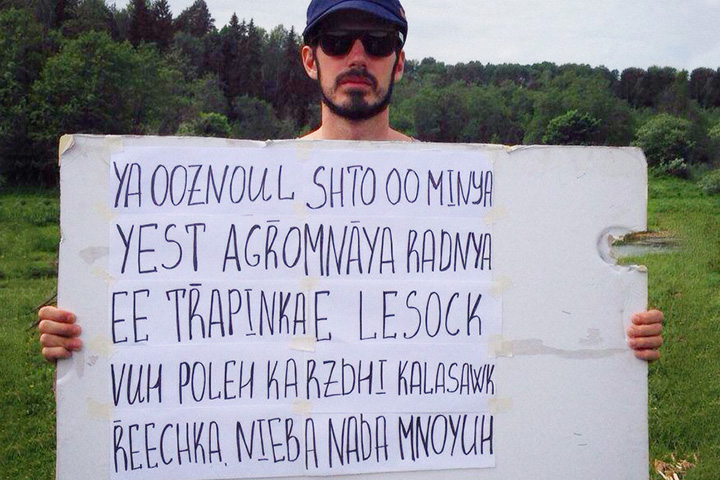 YA OOZNOUL SHTO OO MINYA
YEST AGROMNAYA RADNYA
EE TRAPINKA E LESOCK
VUH POLEH KARZDHI KALASAWK
REECHKA. NIEBA NADA MNOYUH